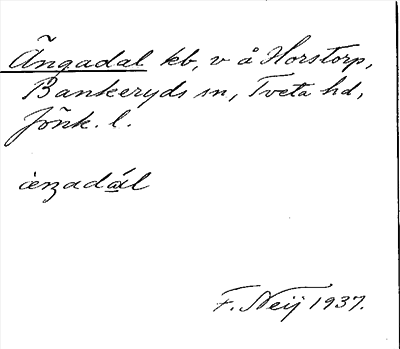 Ängadal kb, v å Horstorp,
Bankeryds sn, Tveta hd,
Jönk. l.
F. Neij 1937.